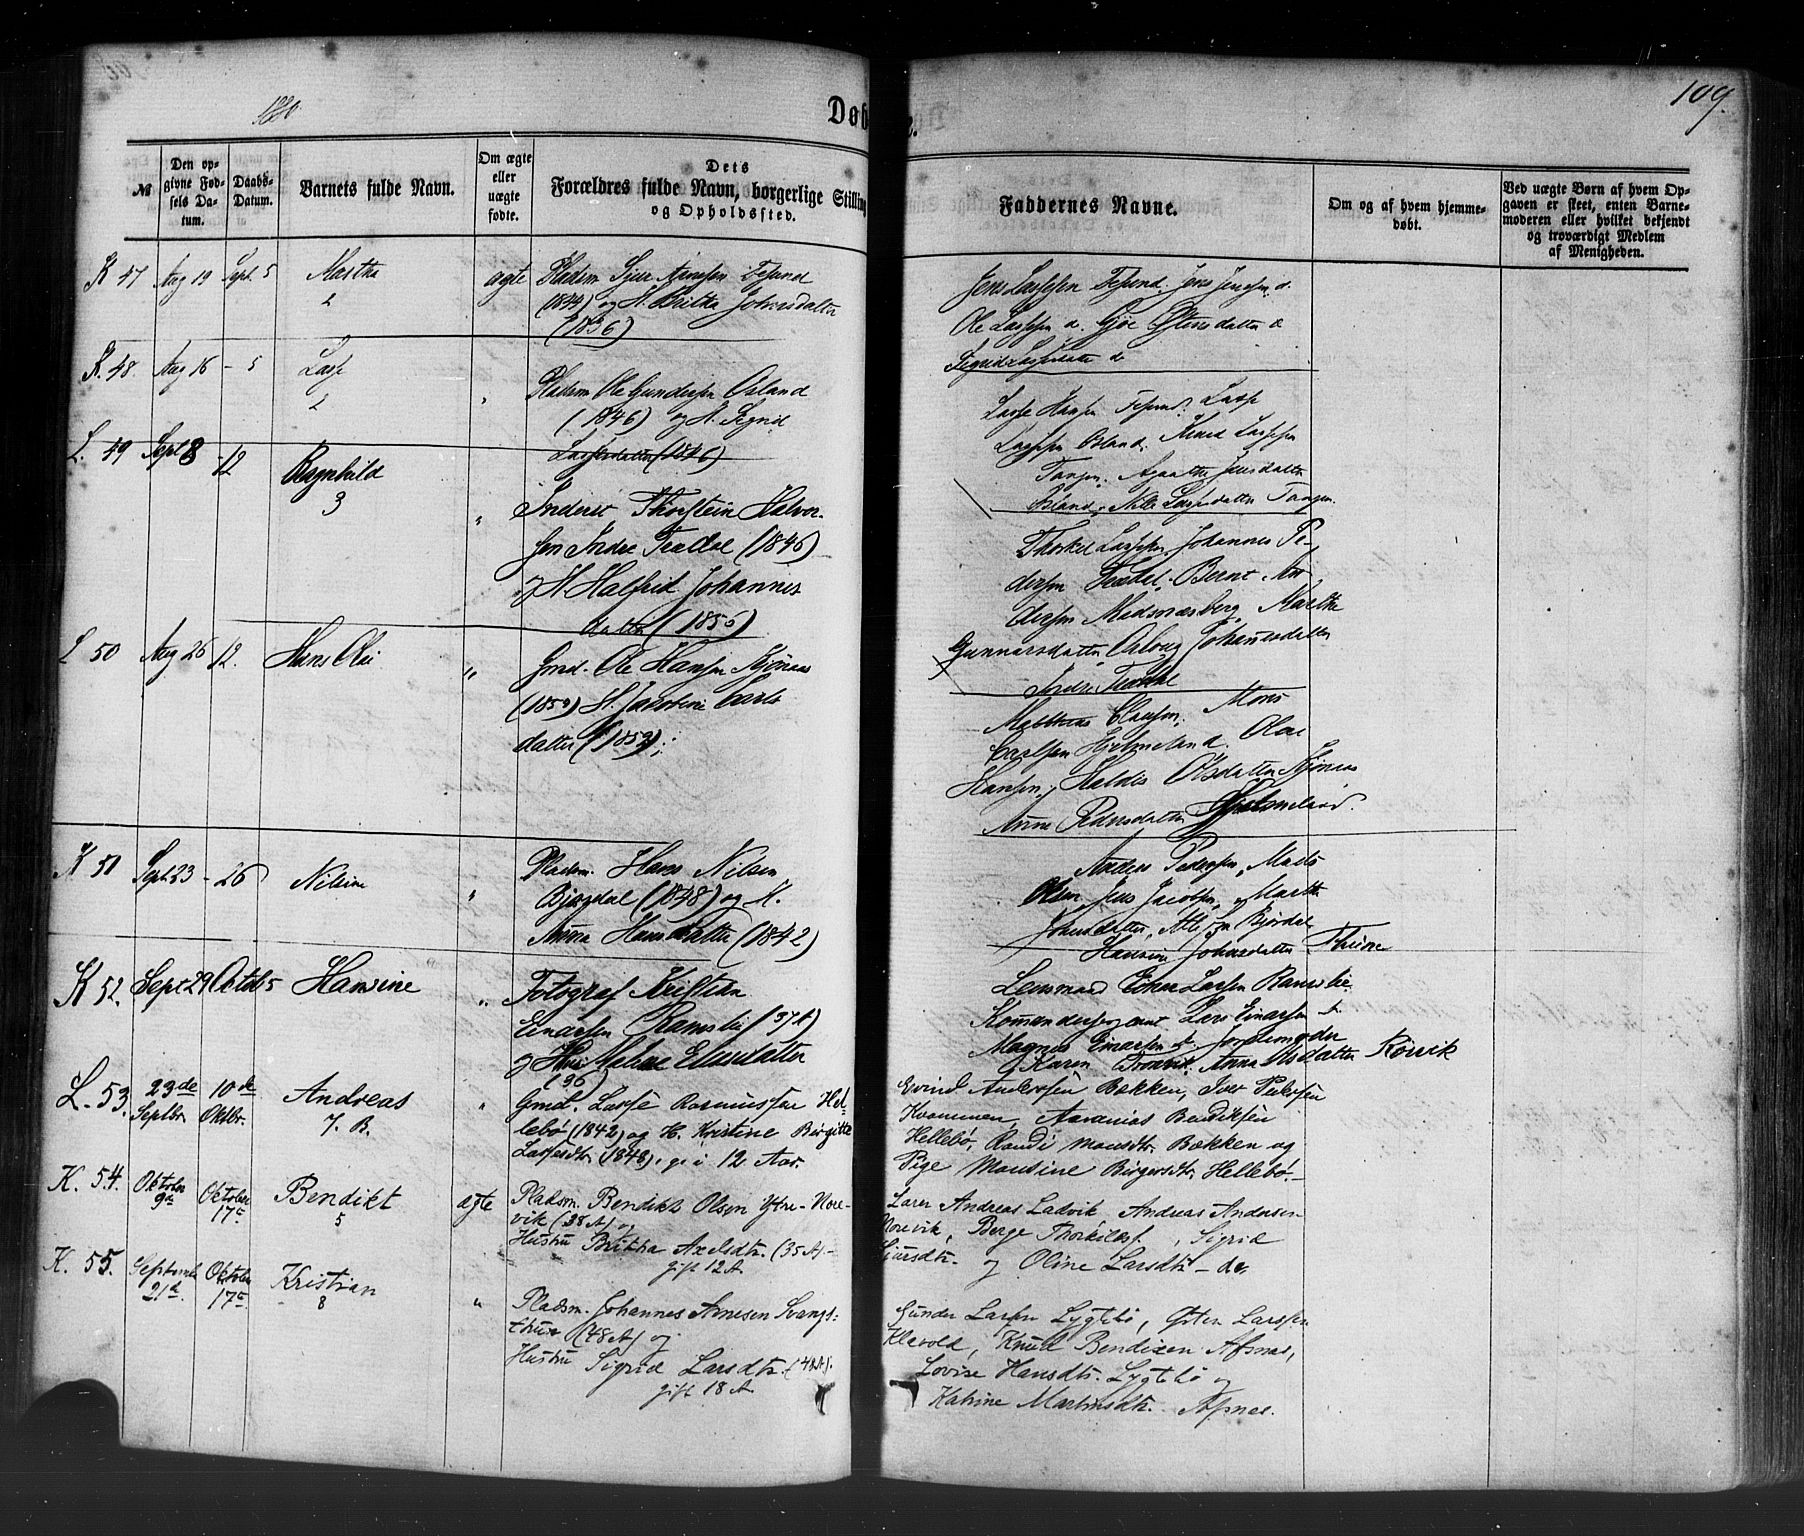 1880
Døb
109.
№
Den op-
givne Fød-
sels Da-
tum.
Daabs-
Datum.
Barnets fulde Navn.
Om ægte
eller
uægte
fødte.
Dets
Forældres fulde Navn, borgerlige Stilling
og Opholdssted.
Faddernes Navne.
Om og af hvem hjemme-
døbt.
Ved uægte Børn af hvem Op-
gaven er skeet, enten Barne-
moderen eller hvilket bekjendt
og troværdigt Medlem
af Menigheden.
K 47 Aug 19 Sept. 5 Martha ægte Pladsm Sjur Arnesen
2 (1844) og H. Britha Johnsdatter
(1836)
Ole Lassesen d.
Sigrid Lassesdatter d
K. 48 Aug 16 - 5 Lasse " Pladsm Ole Gundersen Osland
2 (1846) og H. Sigrid
Lassesdatter (1846)
Lasse Hansen Lasse
Lassesen Osland. Knud Lassesen
Tangen. Jensdatter
Osland, Lassesdatter Tangen
L. 49 Sept 8 - 12 Ragnhild " Inderst Thorstein Halvor-
3 sen Indre Tredal (1846)
og H Halfrid Johannes
datter (1856)
Thorkel Lassesen, Johannes Pe-
dersen Tredal. Bernt An-
dersen Madsnæsberg, Martha
Gunnarsdatter, Oslaug Johannesdatter
Indre Tredal
L 50 Aug 26 12. Hans Olai " Gmd. Ole Hansen
(1850) H. Jacobine Carls
datter (1852);
Matthias Clausen, Mons
Carlsen Hjelmeland. Olai
Hansen, Haldis Olsdatter
Anne Hjelmeland.
K 51 Sept. 23 - 26 Nilsine " Pladsm. Hans Nilsen
Bjørdal (1848) og H.
Anna Hansdatter (1842)
Anders Pedersen, Mads
Olsen, Jens Jacobsen, Martha
Johnsdatter, Alle fra Bjørdal
Hansine Johnsdatter
K 52. Sept 29 Octob 5 Hansine " Fotograf Kristian
Einarsen Ramslie (37 A)
og Hu Malene Eliasdatter
(36)
Lensmand Einar Larsen Ramslie
Komandersergeant Lars Einarsen
Magnus Einarsen st. Jordemoder
Karen Anna Olsdatter Rørvik
L. 53. 23de 10de Andreas " Gmd. Lasse Rasmussen Hel-
Septbr. Oktbr. 7. B. lebø (1842) og H. Kristine Birgitte
Lassesdtr (1848), g. i 12 Aar.
Eivind Andersen Bækken, Iver Pedersen
Kvammen, Ananias Bendiksen
Hellebø, Randi Monsdtr. Bækken og
Pige Monsine Birgersdtr. Hellebø.
K. 54. Oktober Oktober Bendikt ægte Pladsm. Bendikt Olsen Ytre-Nore-
9de 17de 5 vik (38 A) og
Hustru Britha Axelsdtr. (35 A) -
gift 12 A
Lærer Andreas Ladvik, Andreas Andersen
Norevik, Berge Thorkilds. , Sigrid
Sjursdtr. og Oline Larsdtr - de.
K. 55. September Oktober Kristian " Pladsm. Johannes Arnesen Svangs-
21de. 17de 8 thun (48 A) og
Hustru Sigrid Larsdtr. (42 A).
gift 18 A
Gunder Larsen Lygtebø, Østen Larssen
Klævold, Knud Bendixen Afsnæs,
Lovise Hansdtr. Lygtebø og
Katrine Martinsdtr. Afsnæs.